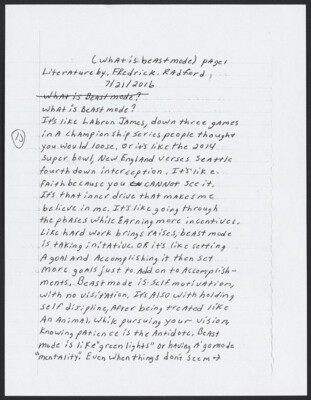 (What is beast mode) page 1
Literature by. Fredrick. Radford,
7/21/2016
What is Beast mode?
What is Beast mode?
It's like Labron James, down three games
in A championship series people thought
you would loose. Or it's like the 2014
super bowl, New England verses Seattle
fourth down interception. It's like
faith because you CANNOT see it,
It's that inner drive that makes me
believe in me. It's like going through
the phases while Earning more incentives.
Like hard work brings raises, beast mode
is taking initative. OR it's like setting
A goal and Accomplishing it then set
more goals just to Add on to Accomplish-
ments. Beast mode is self motivation,
with no visitation. It's Also with holding
self disipline, After being treated like
An Animal. While pursuing your vision
Knowing patience is the Antidote. Beast
mode is like "green lights" or having A "go mode
"mentality". Even when things don't seem →